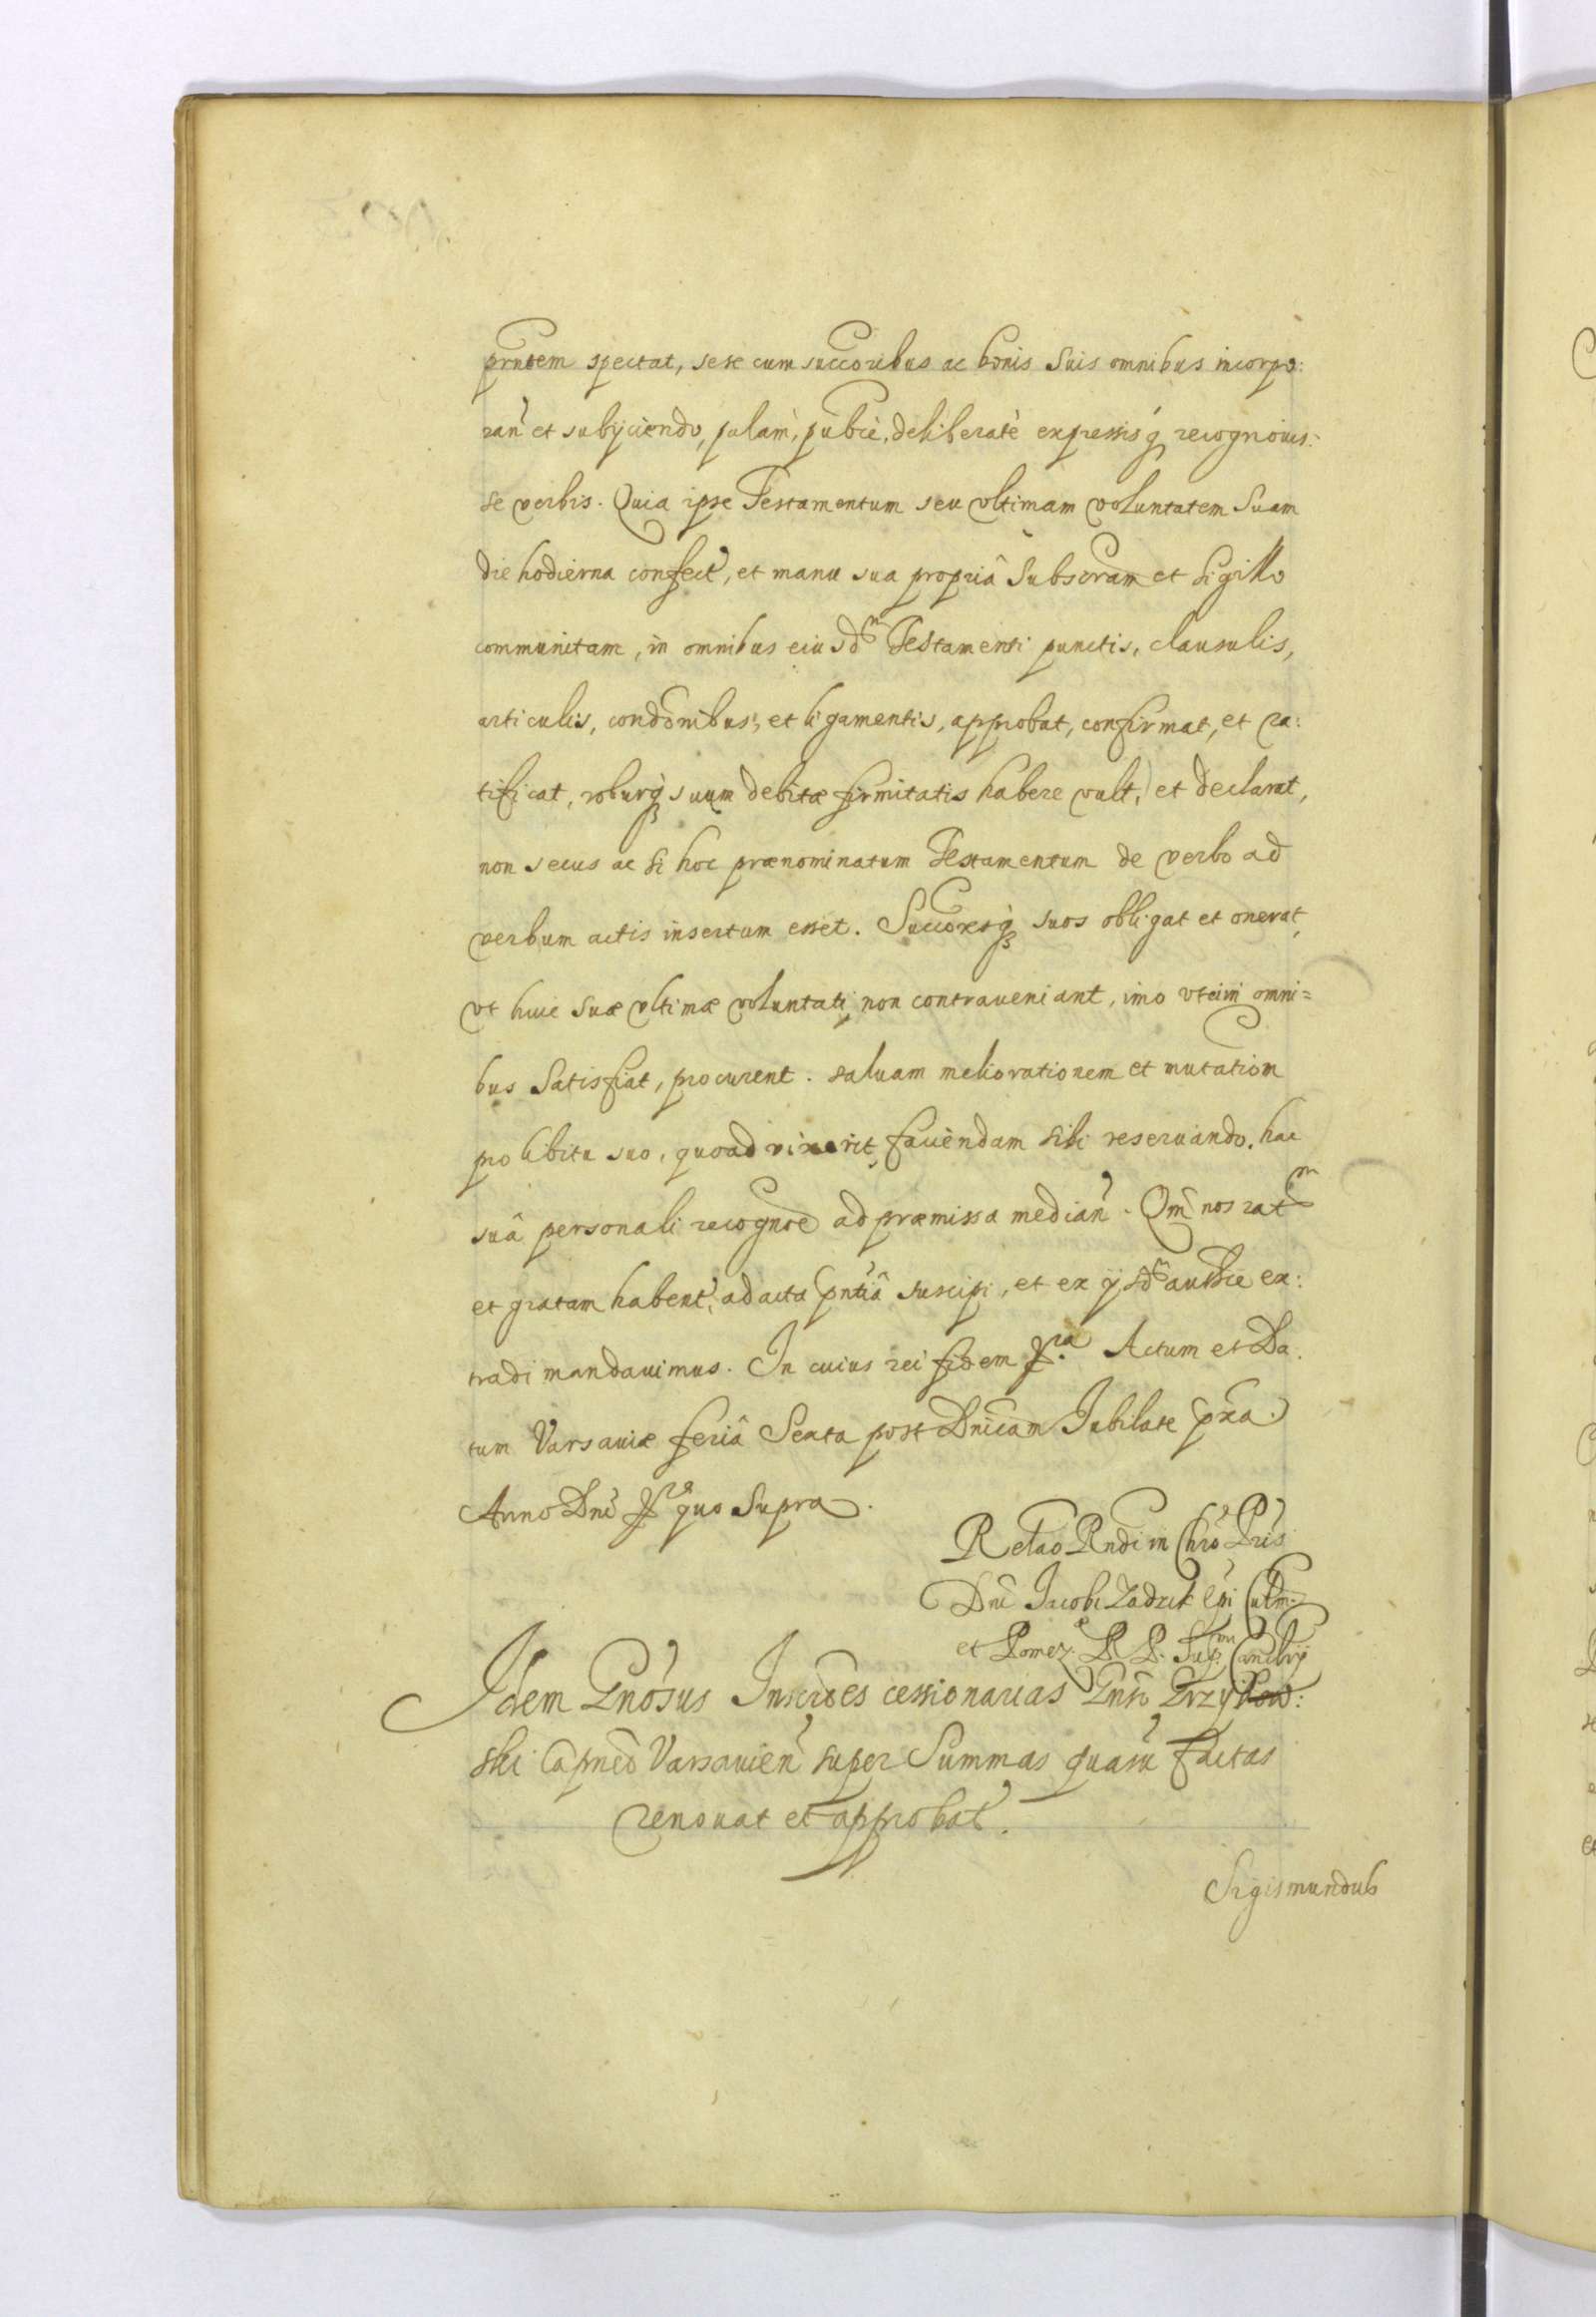 prntem spectat, sese cum succoribus ac bonis suis omnibus incorpo:
ran et subijciendo, palam, publice, deliberate expressisq recognouis:
se verbis. Quia ipse Testamentum seu vltimam voluntatem Suam
die hodierna confect, et manu sua propriâ Subscram et Sigillo
communitam, in omnibus eiusdm Testamenti punctis, clausulis,
articulis, condonibus, et ligamentis, approbat, confirmat, et ra:
tificat, roburq suum debitæ firmitatis habere vult, et declarat,
non secus ac si hoc prænominatum Testamentum de verbo ad
verbum actis insertum esset. Succoresq suos obligat et onerat,
vt huic Suæ vltimæ voluntati non contraueniant, imo vt ei in omni=
bus Satisfiat, procurent. saluam meliorationem et mutation
pro libitu suo, quoad vixerit, faciendam sibi reseruando. hac
suâ personali recognoe ad præmissa median. Qm nos ratm
et gratam habent, ad acta pntia suscipi, et ex ijsdm authce ex:
tradi mandauimus. In cuius rei fidem Actum et Da:
tum Varsauiæ feriâ Sexta post Dnicam Jubilate pxa.
Anno Dni quo Supra.
Relao Rndi in Chro Pris
Dni Jacobi Zadzik Epi Culm:
et Pomez. R. P. Sup. Cancelrij
Idem Gnosus Inscrőes cessionarias Gnsi Grzybow:
ski Capnei Varsauien super Summas quasu factas
renouat et approbat.
Sigismundus